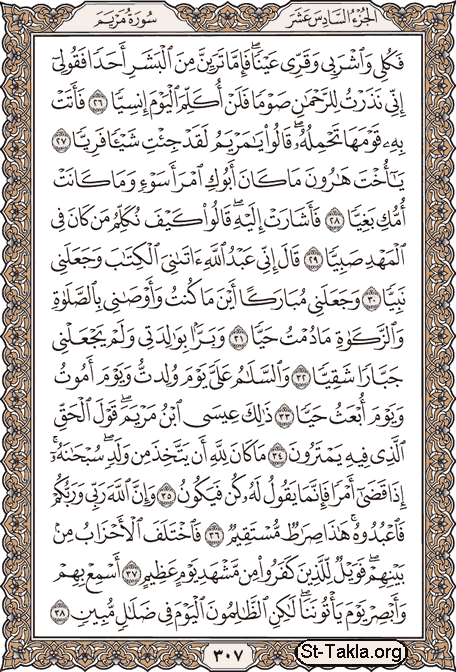 الجزء السادس عشر
سورة مريم
فَكُلِي وَاشْرَبِي وَقَرِّي عَيْنًا ۖ فَإِمَّا تَرَيِنَّ مِنَ الْبَشَرِ أَحَدًا فَقُولِي
إِنِّي نَذَرْتُ لِلرَّحْمَٰنِ صَوْمًا فَلَنْ أُكَلِّمَ الْيَوْمَ إِنسِيًّا ٢٦ فَأَتَتْ
بِهِ قَوْمَهَا تَحْمِلُهُ ۖ قَالُوا يَا مَرْيَمُ لَقَدْ جِئْتِ شَيْئًا فَرِيًّا ٢٧
يَا أُخْتَ هَارُونَ مَا كَانَ أَبُوكِ امْرَأَ سَوْءٍ وَمَا كَانَتْ
أُمُّكِ بَغِيًّا ٢٨ فَأَشَارَتْ إِلَيْهِ ۖ قَالُوا كَيْفَ نُكَلِّمُ مَن كَانَ فِي
الْمَهْدِ صَبِيًّا ٢٩ قَالَ إِنِّي عَبْدُ اللَّهِ آتَانِيَ الْكِتَابَ وَجَعَلَنِي
نَبِيًّا ٣٠ وَجَعَلَنِي مُبَارَكًا أَيْنَ مَا كُنتُ وَأَوْصَانِي بِالصَّلَاةِ
وَالزَّكَاةِ مَا دُمْتُ حَيًّا ٣١ وَبَرًّا بِوَالِدَتِي وَلَمْ يَجْعَلْنِي
جَبَّارًا شَقِيًّا ٣٢ وَالسَّلَامُ عَلَيَّ يَوْمَ وُلِدتُّ وَيَوْمَ أَمُوتُ
وَيَوْمَ أُبْعَثُ حَيًّا ٣٣ ذَٰلِكَ عِيسَى ابْنُ مَرْيَمَ ۚ قَوْلَ الْحَقِّ
الَّذِي فِيهِ يَمْتَرُونَ ٣٤ مَا كَانَ لِلَّهِ أَن يَتَّخِذَ مِن وَلَدٍ ۖ سُبْحَانَهُ ۚ
إِذَا قَضَىٰ أَمْرًا فَإِنَّمَا يَقُولُ لَهُ كُن فَيَكُونُ ٣٥ وَإِنَّ اللَّهَ رَبِّي وَرَبُّكُمْ
فَاعْبُدُوهُ ۚ هَٰذَا صِرَاطٌ مُّسْتَقِيمٌ ٣٦ فَاخْتَلَفَ الْأَحْزَابُ مِن
بَيْنِهِمْ ۖ فَوَيْلٌ لِّلَّذِينَ كَفَرُوا مِن مَّشْهَدِ يَوْمٍ عَظِيمٍ ٣٧ أَسْمِعْ بِهِمْ
وَأَبْصِرْ يَوْمَ يَأْتُونَنَا ۖ لَٰكِنِ الظَّالِمُونَ الْيَوْمَ فِي ضَلَالٍ مُّبِينٍ ٣٨
٣٠٧
St-Takla.org